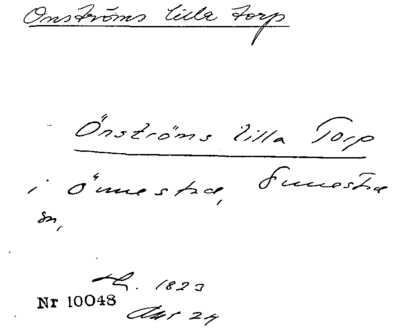 Onströms lilla torp
Önströms lilla Torp
i Önnestad, Önnestad
sn,
1823
Nr 10048 Akt 24